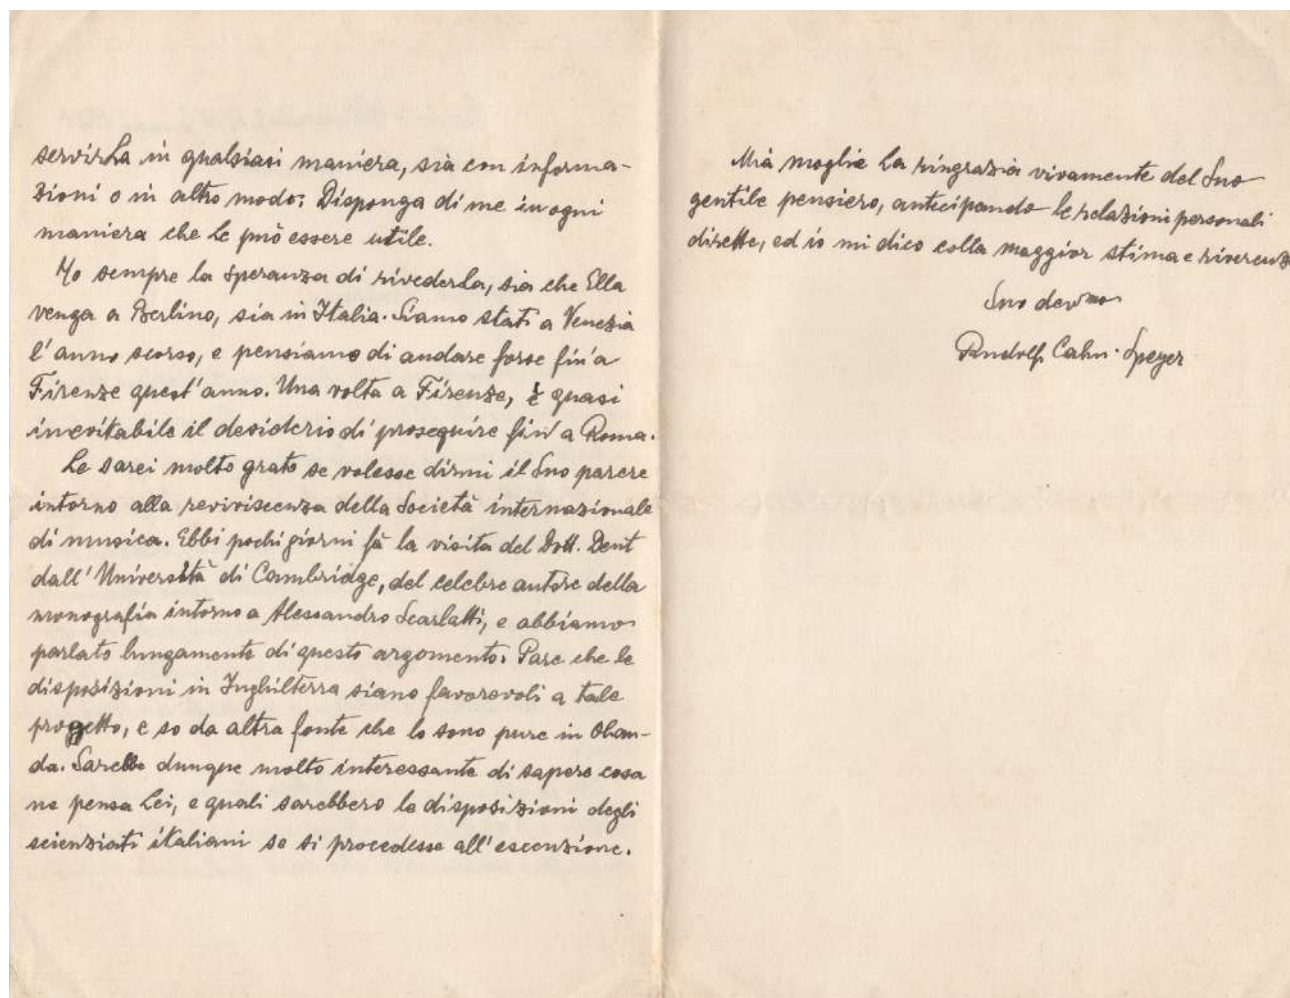 servirLa in qualsiasi maniera, sia con informa-
zioni o in altro modo: Disponga di me in ogni
maniera che Le può essere utile.
Ho sempre la speranza di rivederLa, sia che Ella
venga a Berlino, sia in Italia. Siamo stati a Venezia
l'anno scorso, e pensiamo di andare forse fin'a
Firenze quest'anno. Una volta a Firenze, è quasi
inevitabile il desiderio di proseguire fin' a Roma.
Le sarei molto grato se volesse dirmi il Suo parere
intorno alla reviviscenza della Società internazionale
di musica. Ebbi pochi giorni fà la visita del Dott. Dent
dall'Università di Cambridge, del celebre autore della
monografia intorno a Alessandro Scarlatti, e abbiamo
parlato lungamente di questo argomento. Pare che le
disposizioni in Inghilterra siano favorevoli a tale
progetto, e so da altra fonte che lo sono pure in Olan-
da. Sarebbe dunque molto interessante di sapere cosa
ne pensa Lei, e quali sarebbero le disposizioni degli
scienziati italiani se si procedesse all'esecuzione.
Mia moglie La ringrazia vivamente del Suo
gentile pensiero, anticipando le relazioni personali
dirette, ed io mi dico colla maggior stima e riverenza
Suo devmo
Rudolf Cahn-Speyer